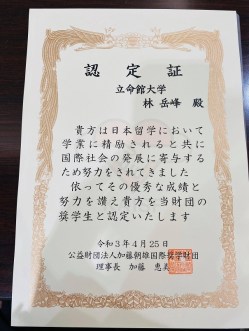 認定証
立命館大学
林岳峰 殿
貴方は日本留学において
学業に精励されると共に
国際社会の発展に寄与する
ため努力をされてきました
依ってその優秀な成績と
努力を讃え貴方を当財団の
奨学生と認定いたします
令和3年4月25日
公益財団法人加藤朝雄国際奨学財団
理事長 加藤 恵美